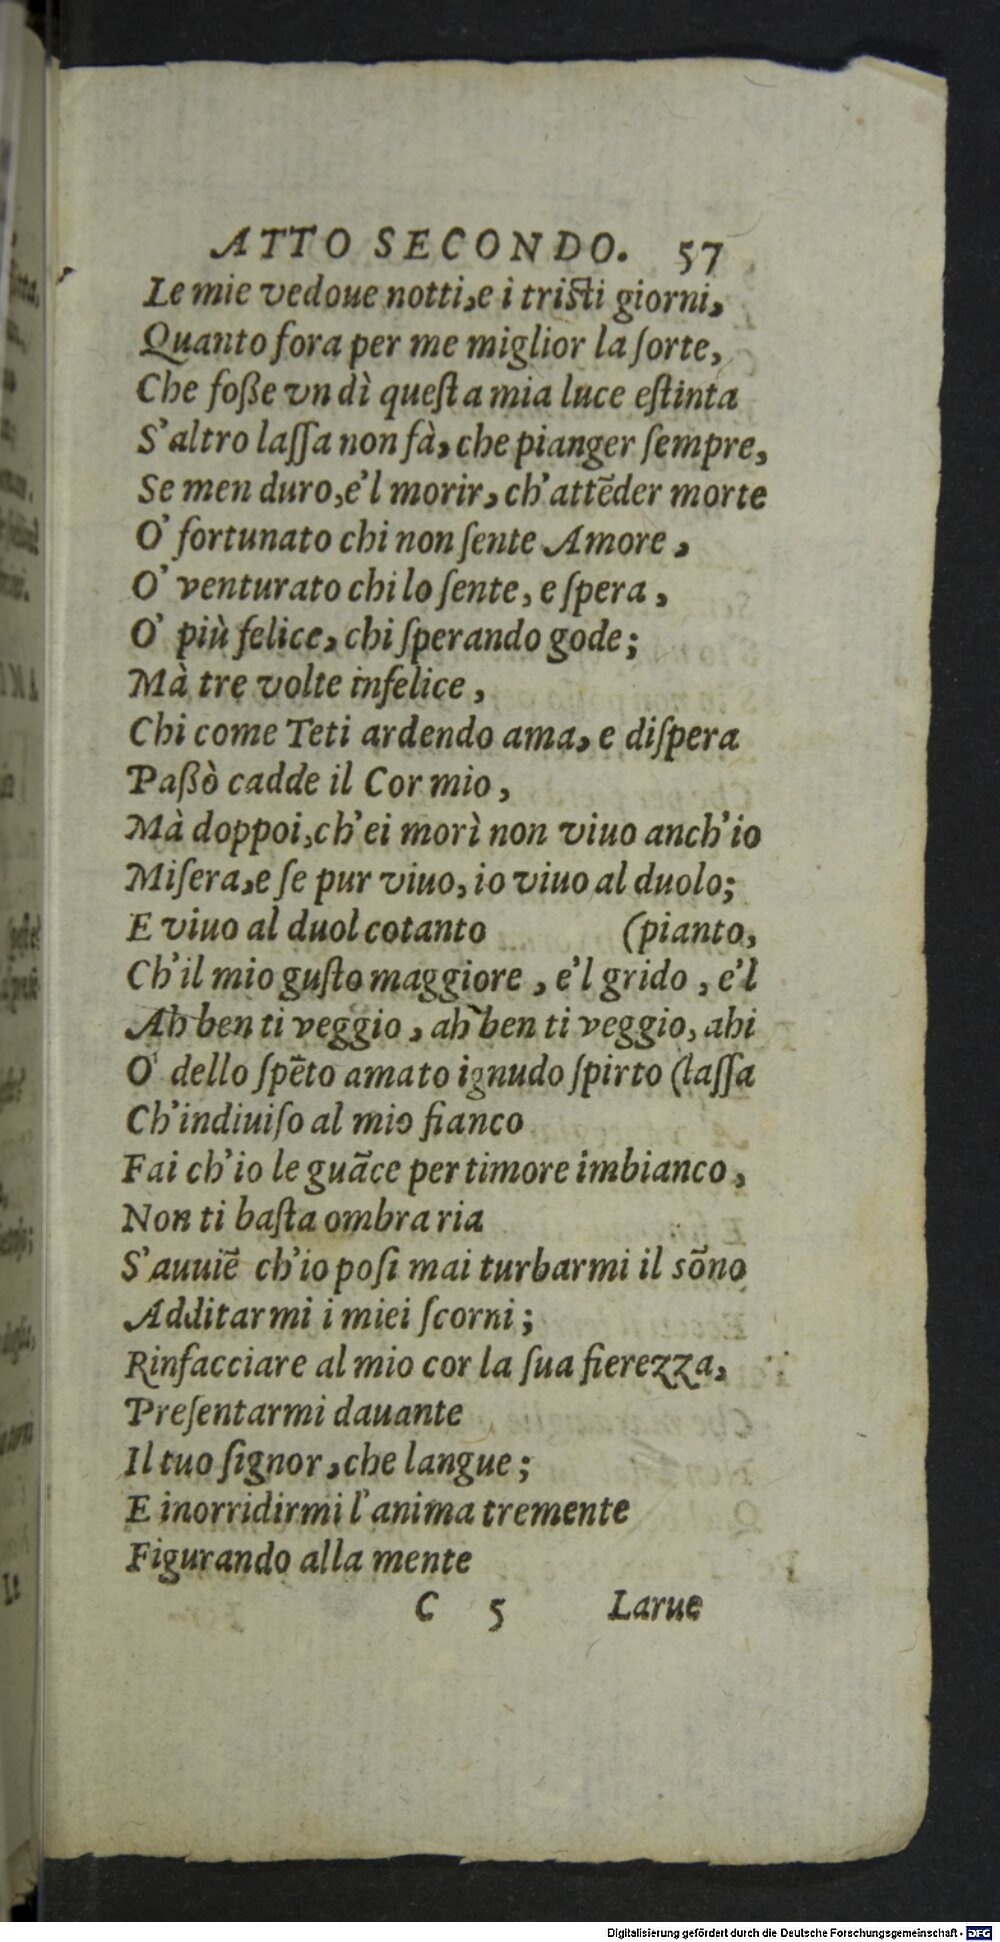 ATTO SECONDO. 57
Le mie vedoue notti, e i tristi giorni,
Quanto fora per me miglior la ſorte,
Che foße vn dì queſta mia luce eſtinta
S'altro laſſa non fà, che pianger ſempre,
Se men duro, e'l morir, ch'attẽder morte
O' fortunato chi non ſente Amore,
O' venturato chi lo ſente, e ſpera,
O' più felice, chi ſperando gode;
Mà tre volte infelice,
Chi come Teti ardendo ama, e diſpera
Paßò cadde il Cor mio,
Mà doppoi, ch'ei morì non viuo anch'io
Miſera, e ſe pur viuo, io viuo al duolo;
E viuo al duol cotanto (pianto,
Ch'il mio guſto maggiore, e'l grido, e'l
Ah ben ti veggio, ah ben ti veggio, ahi
O' dello ſpẽto amato ignudo ſpirto (laſſa
Ch'indiuiſo al mio fianco
Fai ch'io le guãce per timore imbianco,
Non ti baſta ombra ria
S'auuiẽ ch'io poſi mai turbarmi il sõno
Additarmi i miei ſcorni;
Rinfacciare al mio cor la ſua fierezza,
Preſentarmi dauante
Il tuo ſignor, che langue;
E inorridirmi l'anima tremente
Figurando alla mente
C 5 Larue
Digitalisierung gefördert durch die Deutsche Forschungsgemeinschaft - DFG